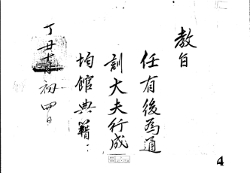 教旨
任有後為通
訓大夫行成
均館典籍
丁丑 月初四日
4